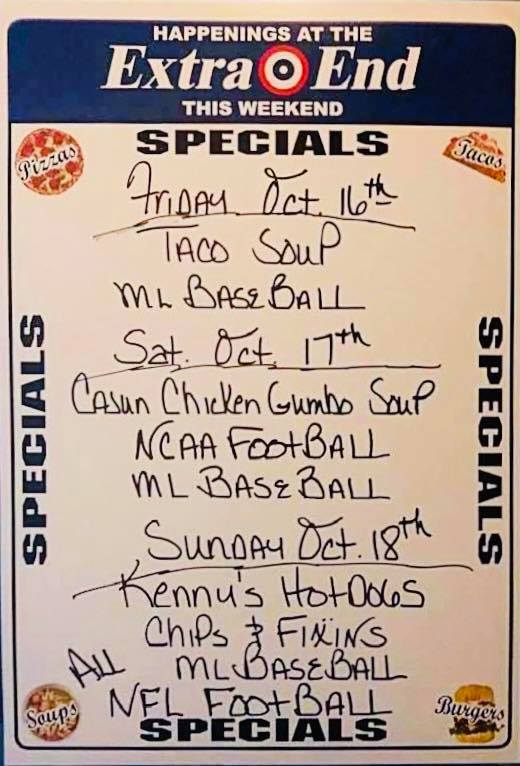 HAPPENINGS AT THE
Extra End
THIS WEEKEND
SPECIALS
Pizzas
Tacos
FRIDAY Oct. 16th
TACO SOUP
ML BASEBALL
Sat. Oct. 17th
CAJUN Chicken Gumbo SOUP
NCAA FOOTBALL
ML BASEBALL
SPECIALS
SPECIALS
SUNDAY Oct. 18th
Kenny's HOTDOGS
CHIPS & FIXINS
ALL ML BASEBALL
NFL FOOTBALL
Soups
Burgers
SPECIALS